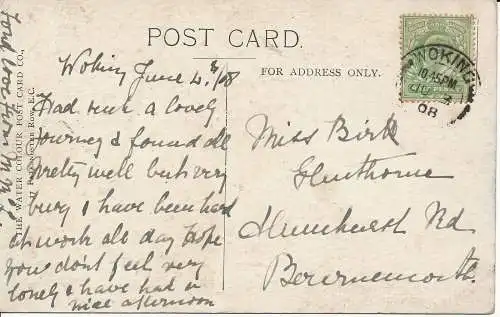 POST CARD.
FOR ADDRESS ONLY.
WOKING
10.45PM
JU
08
THE WATER COLOUR POST CARD CO.,
Row, E.C.
Woking June 4th/08
Had such a lovely
journey & found all
pretty well but very
busy I have been hard
at work all day Hope
you don't feel very
lonely & have had a
nice afternoon
Miss Birk
Glenthorne
Rd
Bournemouth
Fond love from